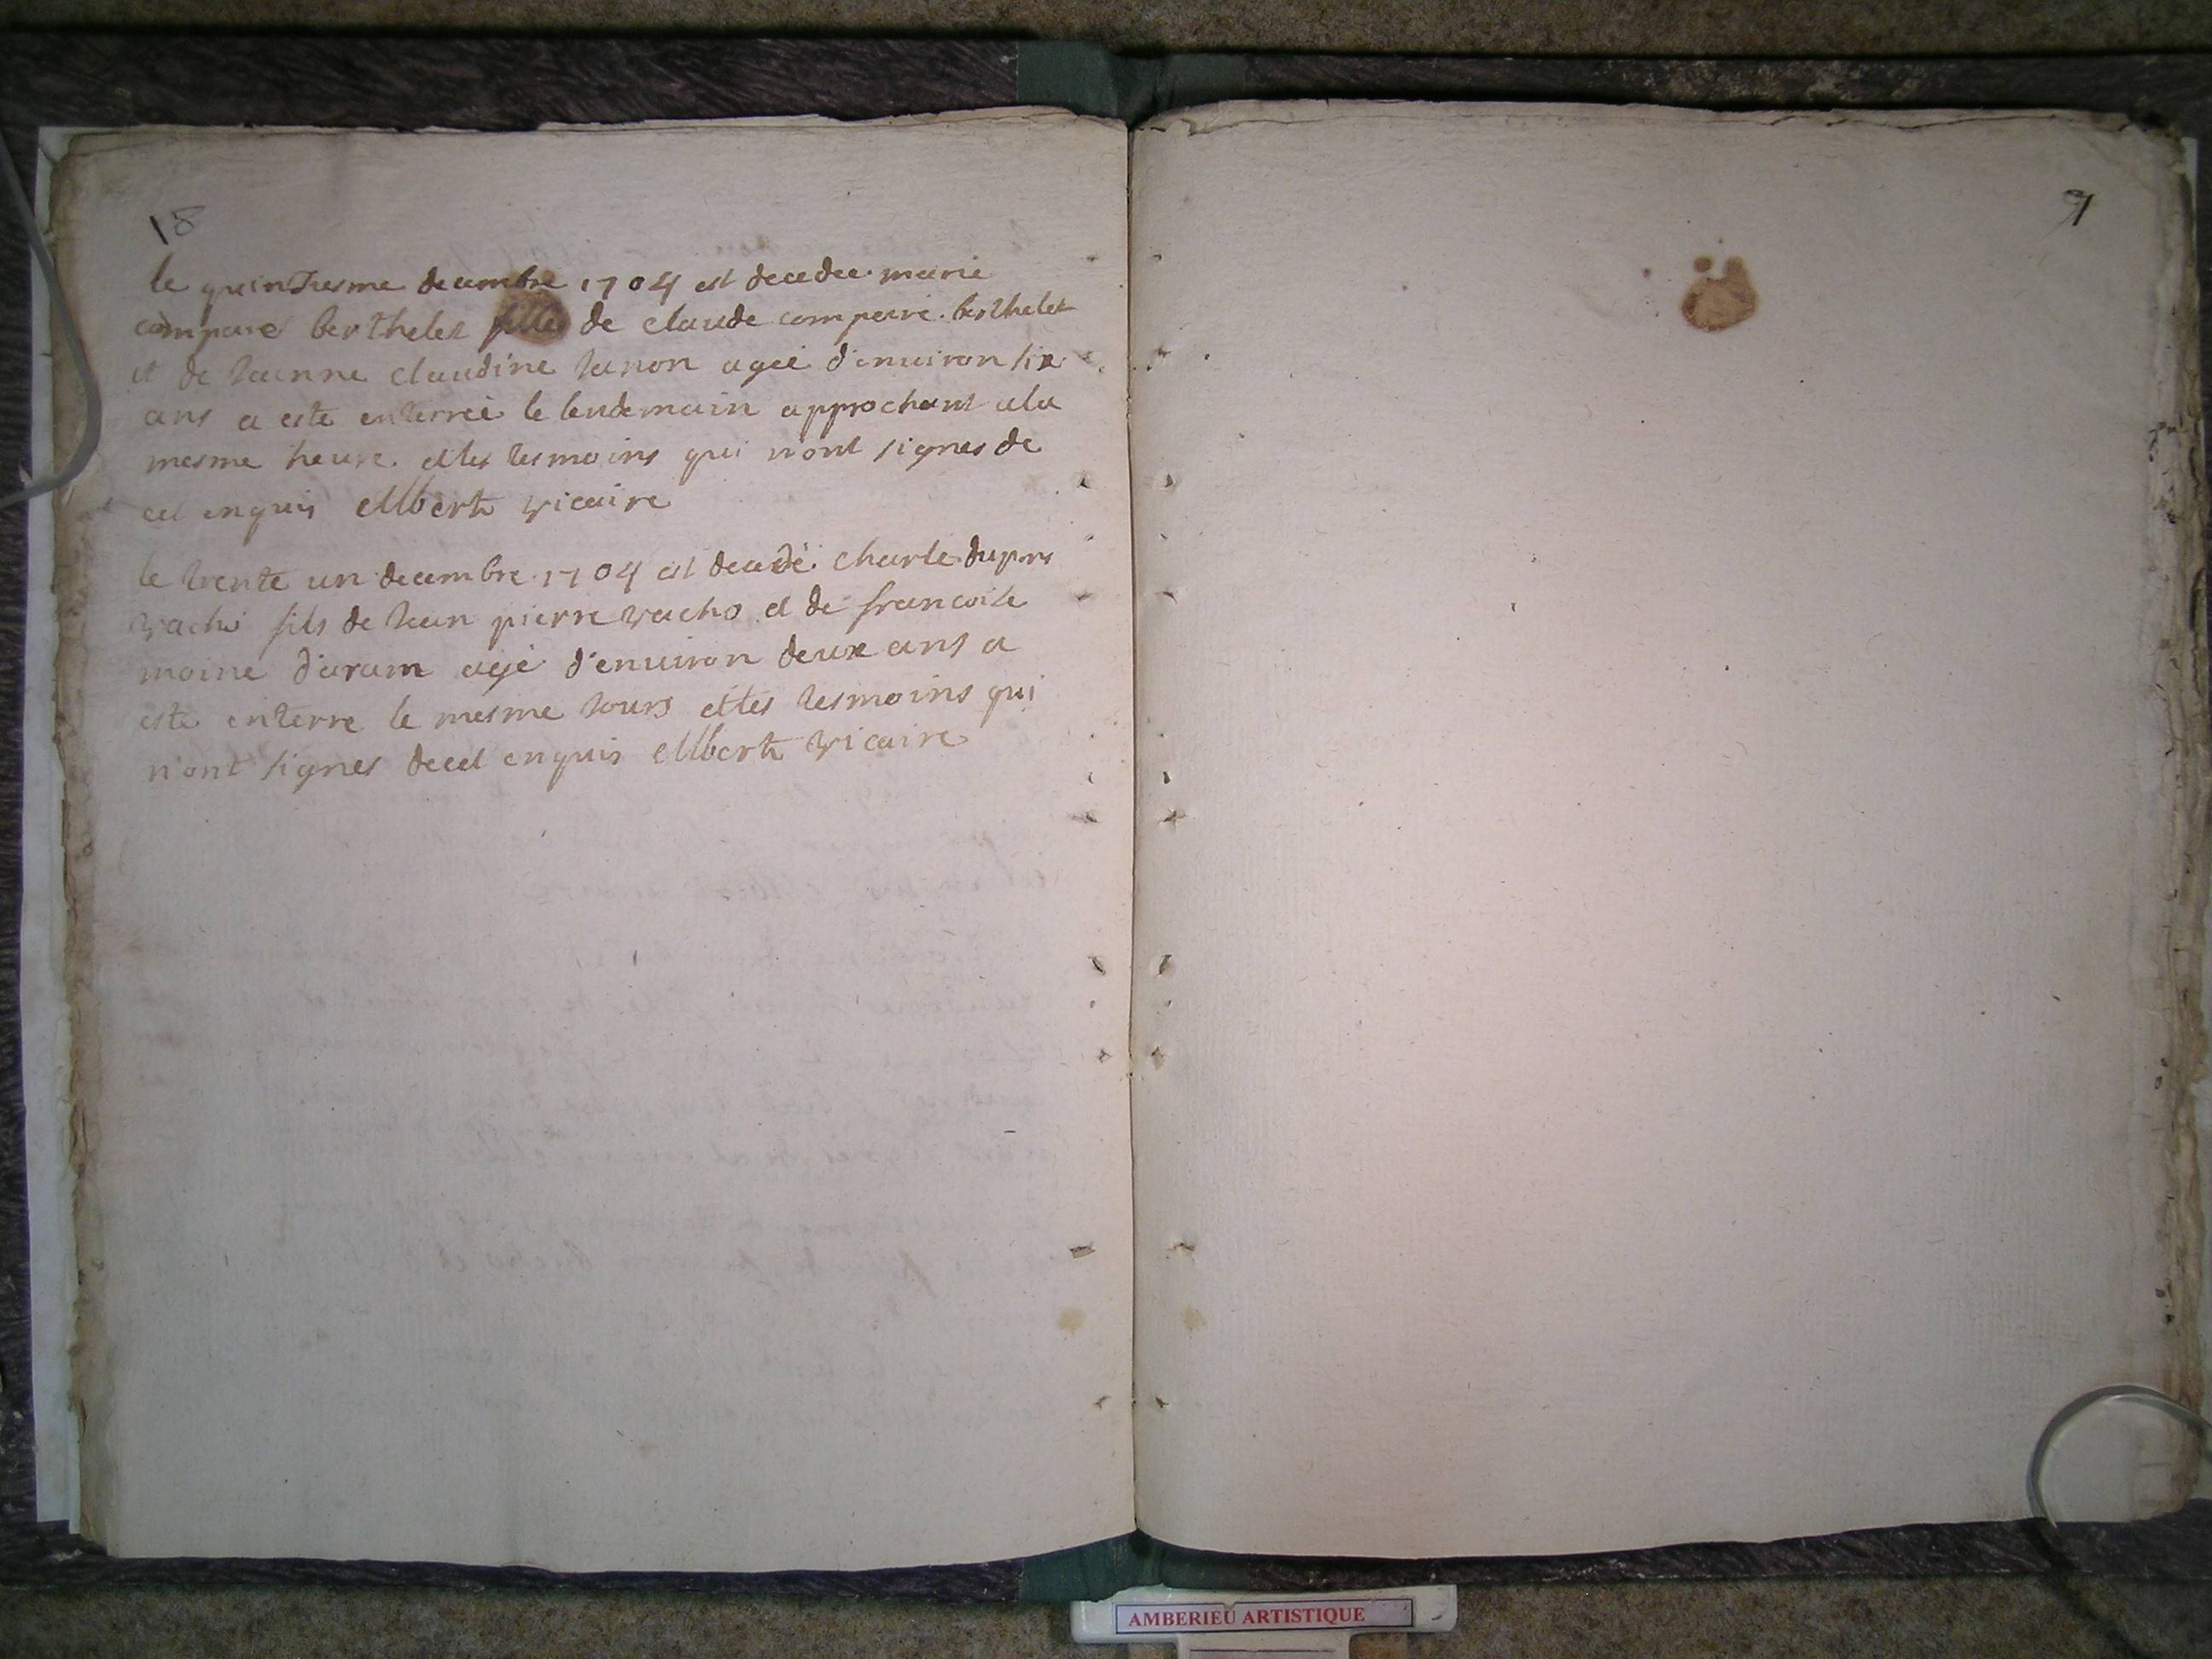 18
le quinziesme decembre 1704 est decedee marie
compare berthelet fille de claude compere berthelet
et de Jeanne claudine Janon agee d'environ six
ans a este enterree le lendemain approchant a la
mesme heure et les tesmoins qui n'ont signes de
cel enquis Mberth vicaire
le trente un decembre 1704 est decedé charle dupons
vacho fils de Jean pierre vacho et de francoise
moine d'aram agé d'environ deux ans a
esté enterre le mesme Jours et les tesmoins qui
n'ont signes de cel enquis Mberth vicaire
9
AMBERIEU ARTISTIQUE